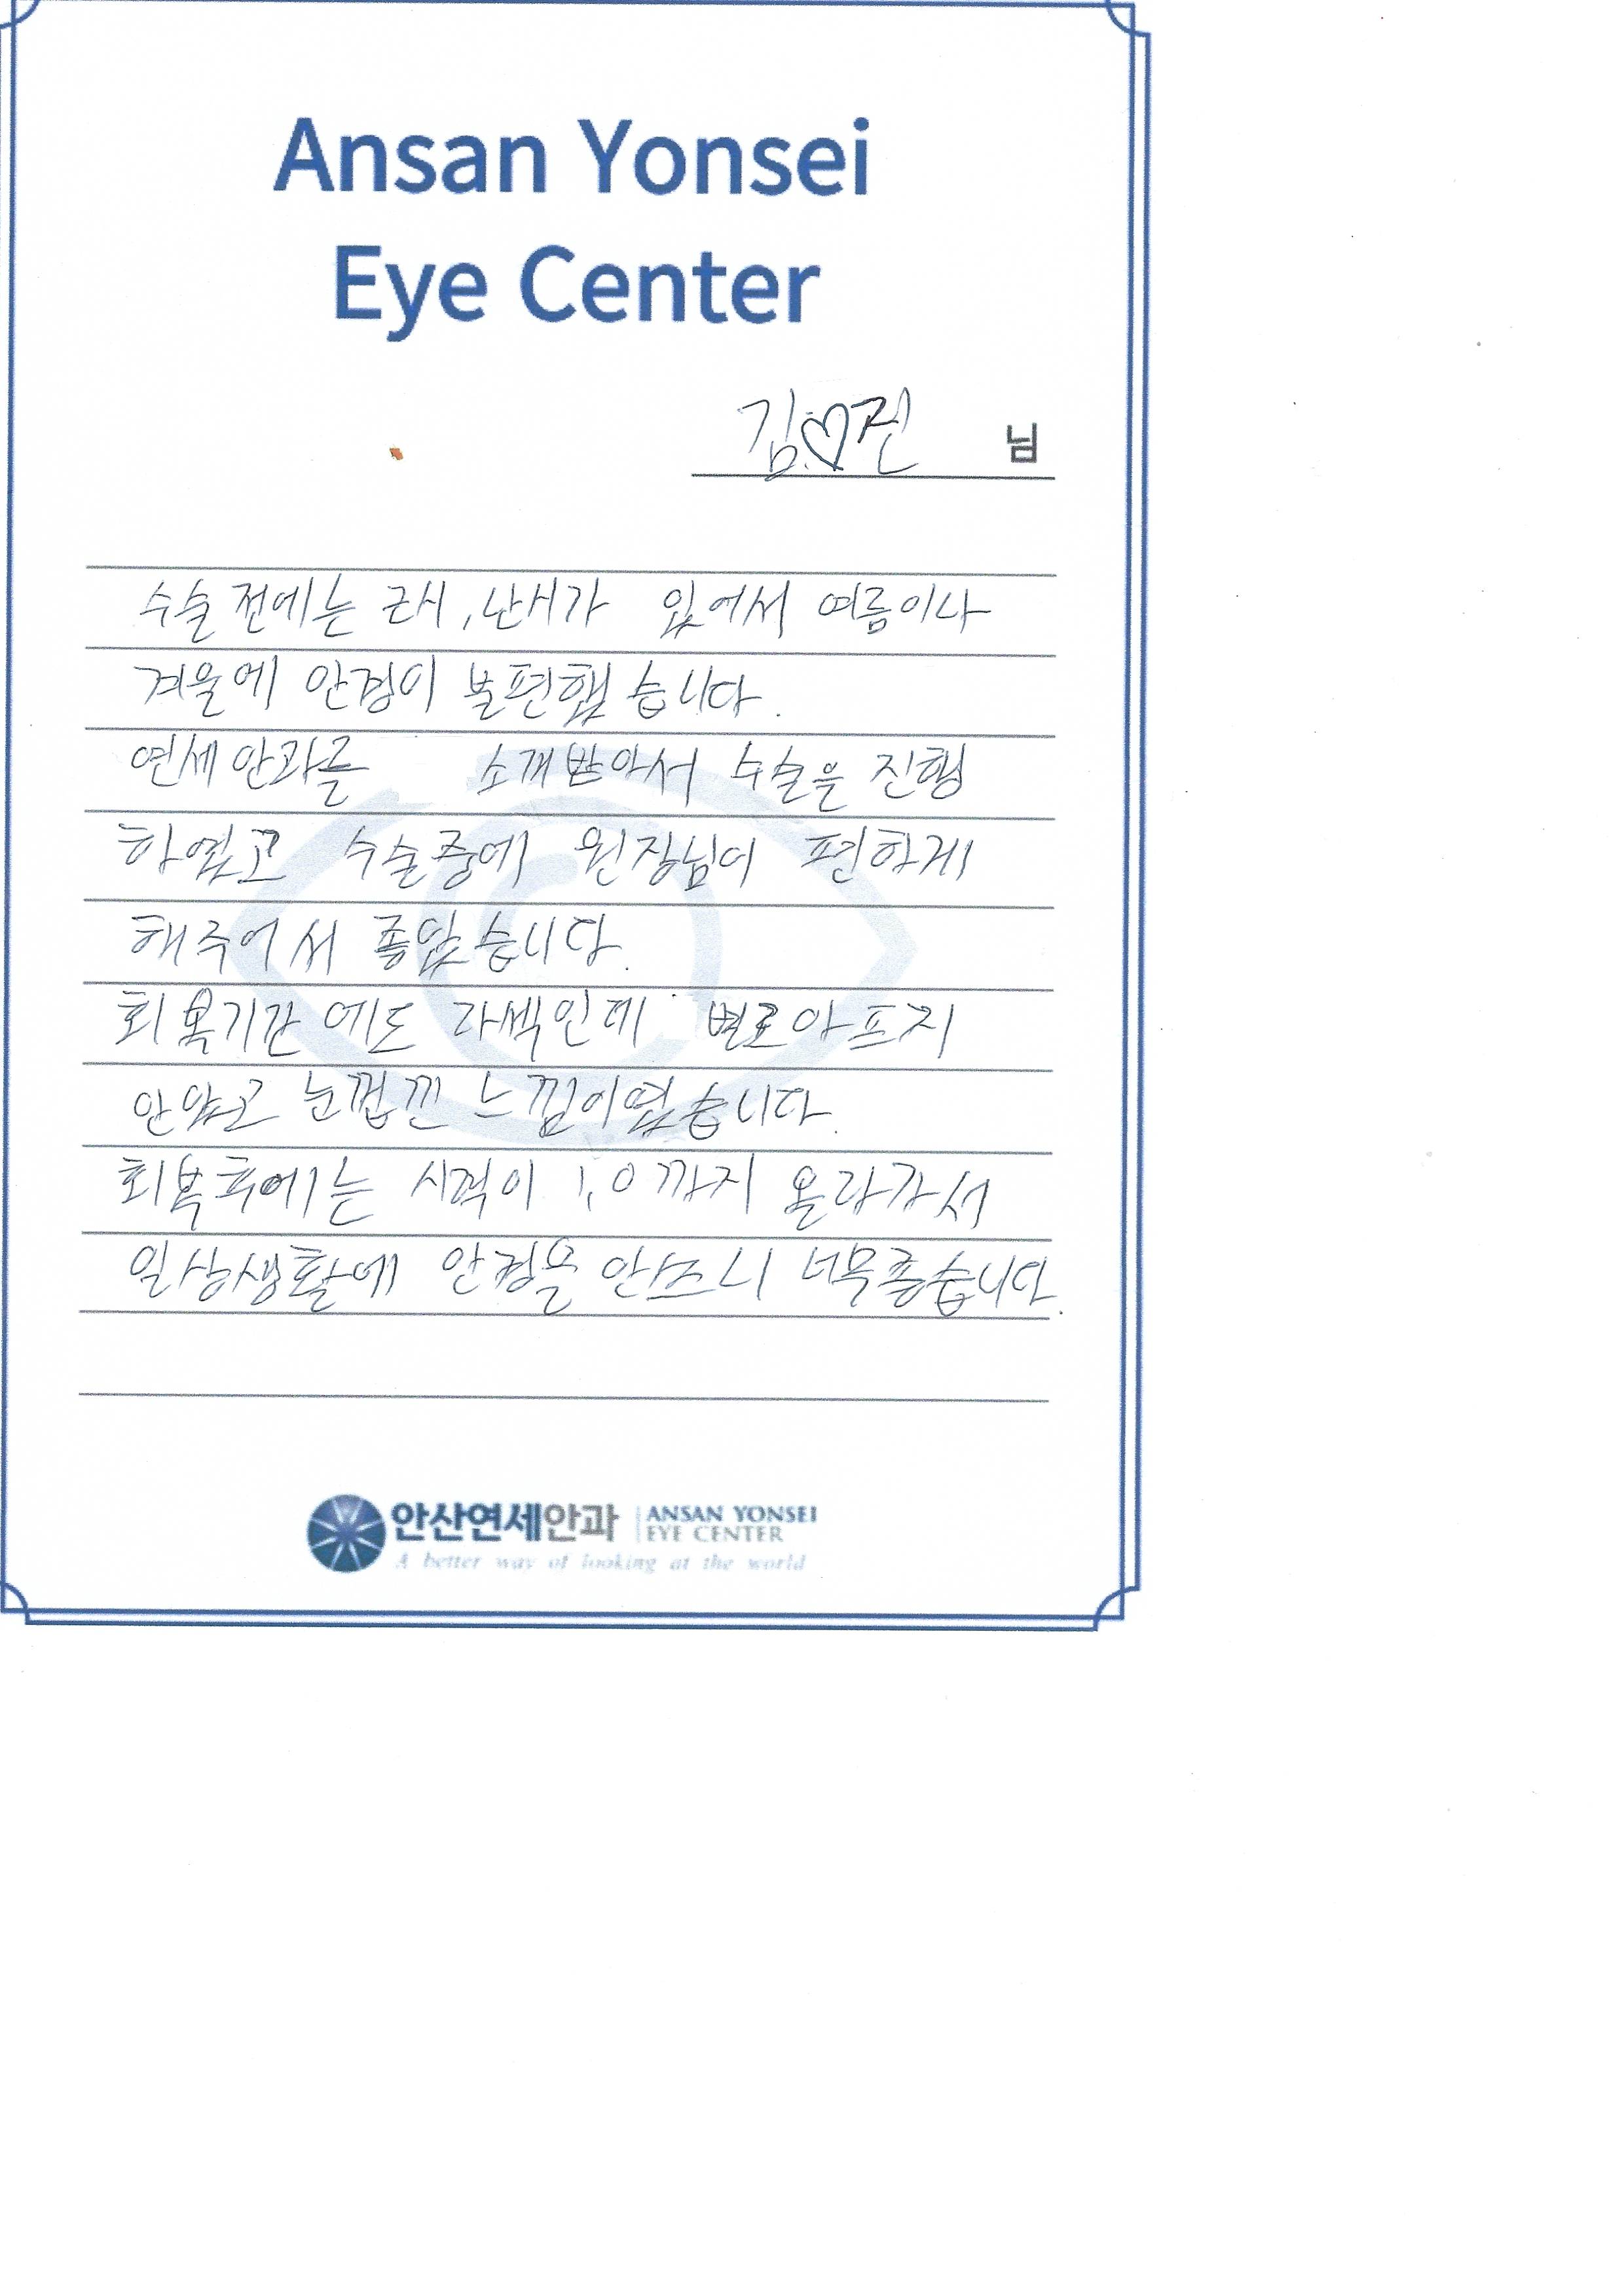 Ansan Yonsei
Eye Center
김♡진 님
수술전에는 근시,난시가 있어서 여름이나
겨울에 안경이 불편했습니다.
연세안과를 소개받아서 수술을 진행
하였고 수술중에 원장님이 편하게
해주어서 좋았습니다.
회복기간에도 라섹인데 별로아프지
안않고 눈꼽낀 느낌이였습니다.
회복후에는 시력이 1,0까지 올라가서
일상생활에 안경을 안쓰니 너무좋습니다.
안산연세안과 ANSAN YONSEI
EYE CENTER
A better way of looking at the world